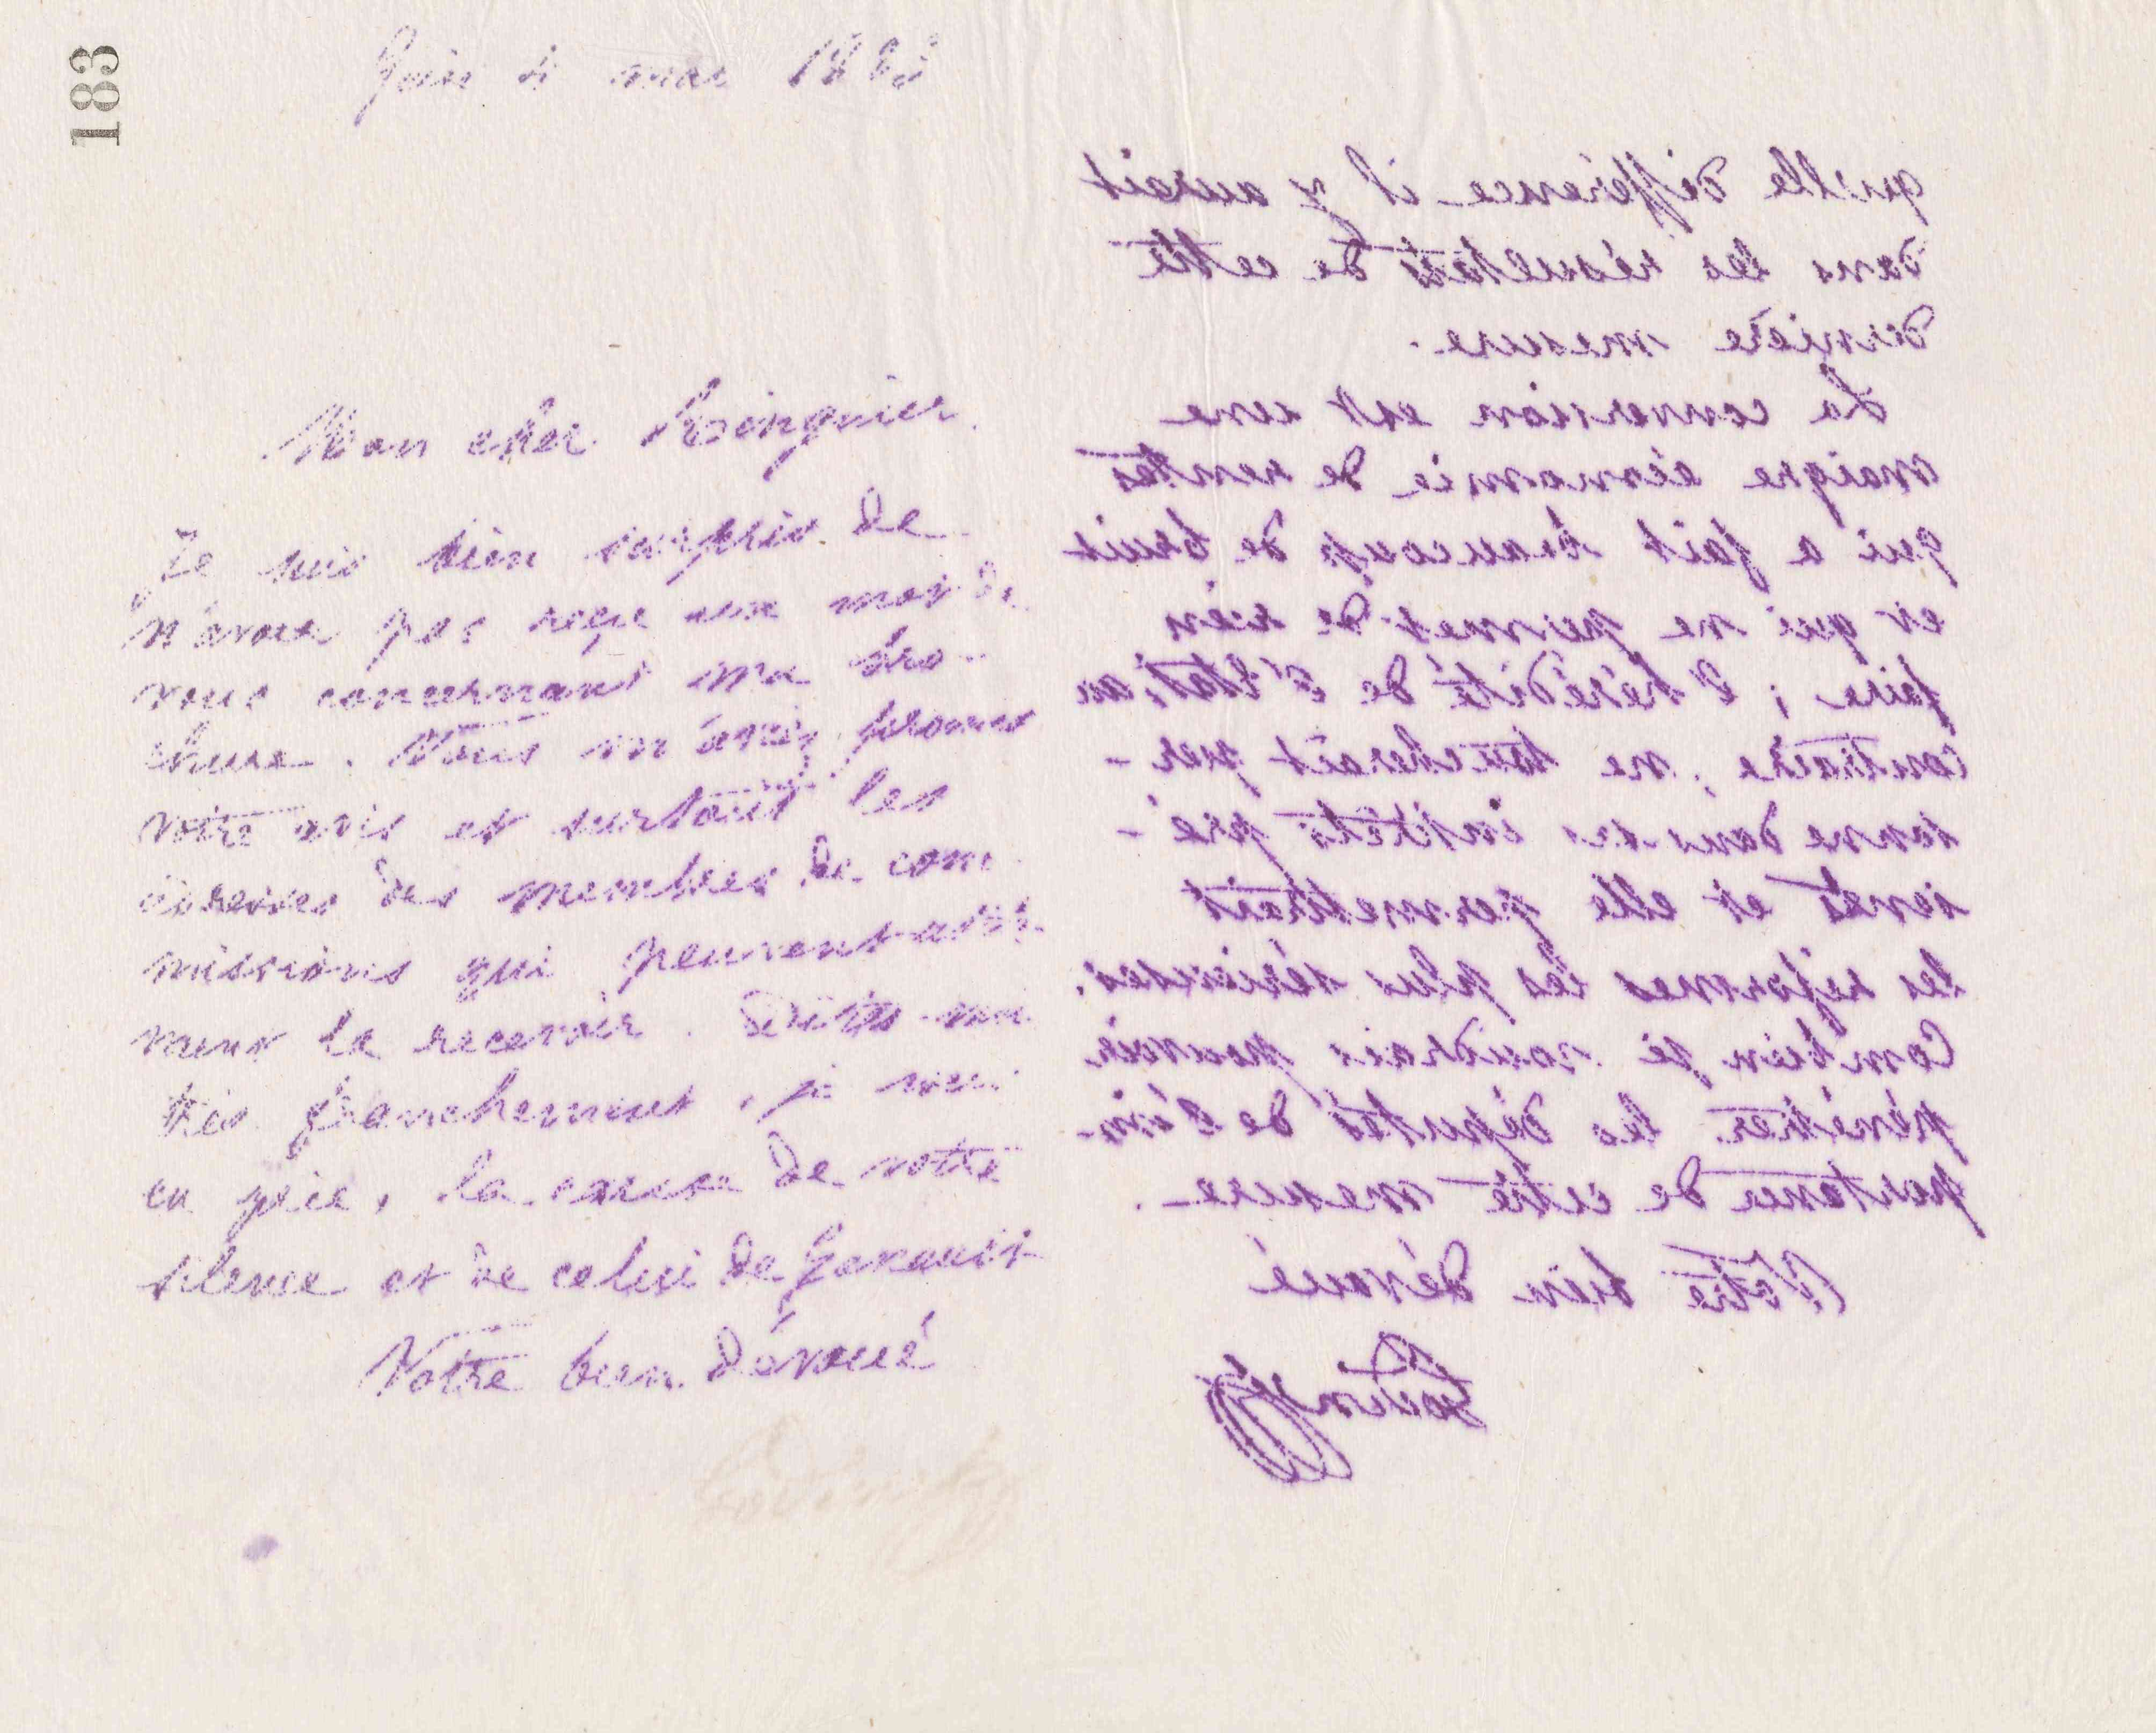 183
Guise 4 mai 1883
Mon cher
Je suis bien surpris de
n'avoir pas reçu un mot de
vous concernant ma bro-
chure. Vous m'aviez promis
votre avis et surtout les
adresses des membres de com
missions qui peuvent
la recevoir. Dites-moi
très franchement, je vous
en prie, la cause de votre
silence et de celui de
Votre bien dévoué
Godin
quelle différence il y aurait
dans les résultats de cette
dernière mesure.
La conversion est une
maigre économie de rentes
qui a fait beaucoup de bruit
et qui ne permet de rien
faire ; l'hérédité de l'Etat, au
contraire, ne toucherait per-
sonne dans ses intérêts pré-
sents et elle permettrait
les réformes les plus sérieuses.
Combien je voudrais pouvoir
pénétrer les députés de l'im-
portance de cette mesure.
Votre bien dévoué
Godin